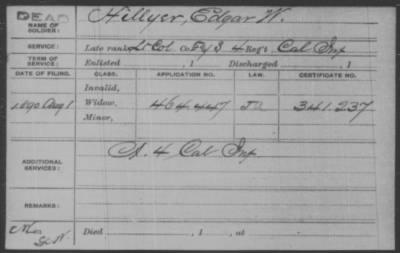 DEAD
NAME OF SOLDIER: Hillyer, Edgar W.
SERVICE: Late rank Lt Col Co F&S 4 Reg't Cal Inf
TERM OF SERVICE: Enlisted , 1 Discharged , 1
DATE OF FILING. CLASS. APPLICATION NO. LAW. CERTIFICATE NO.
Invalid,
1890 Aug 1 Widow, 464.447 341.237
Minor,
ADDITIONAL SERVICES: A. 4 Cal Inf
REMARKS:
Died , 1 , at